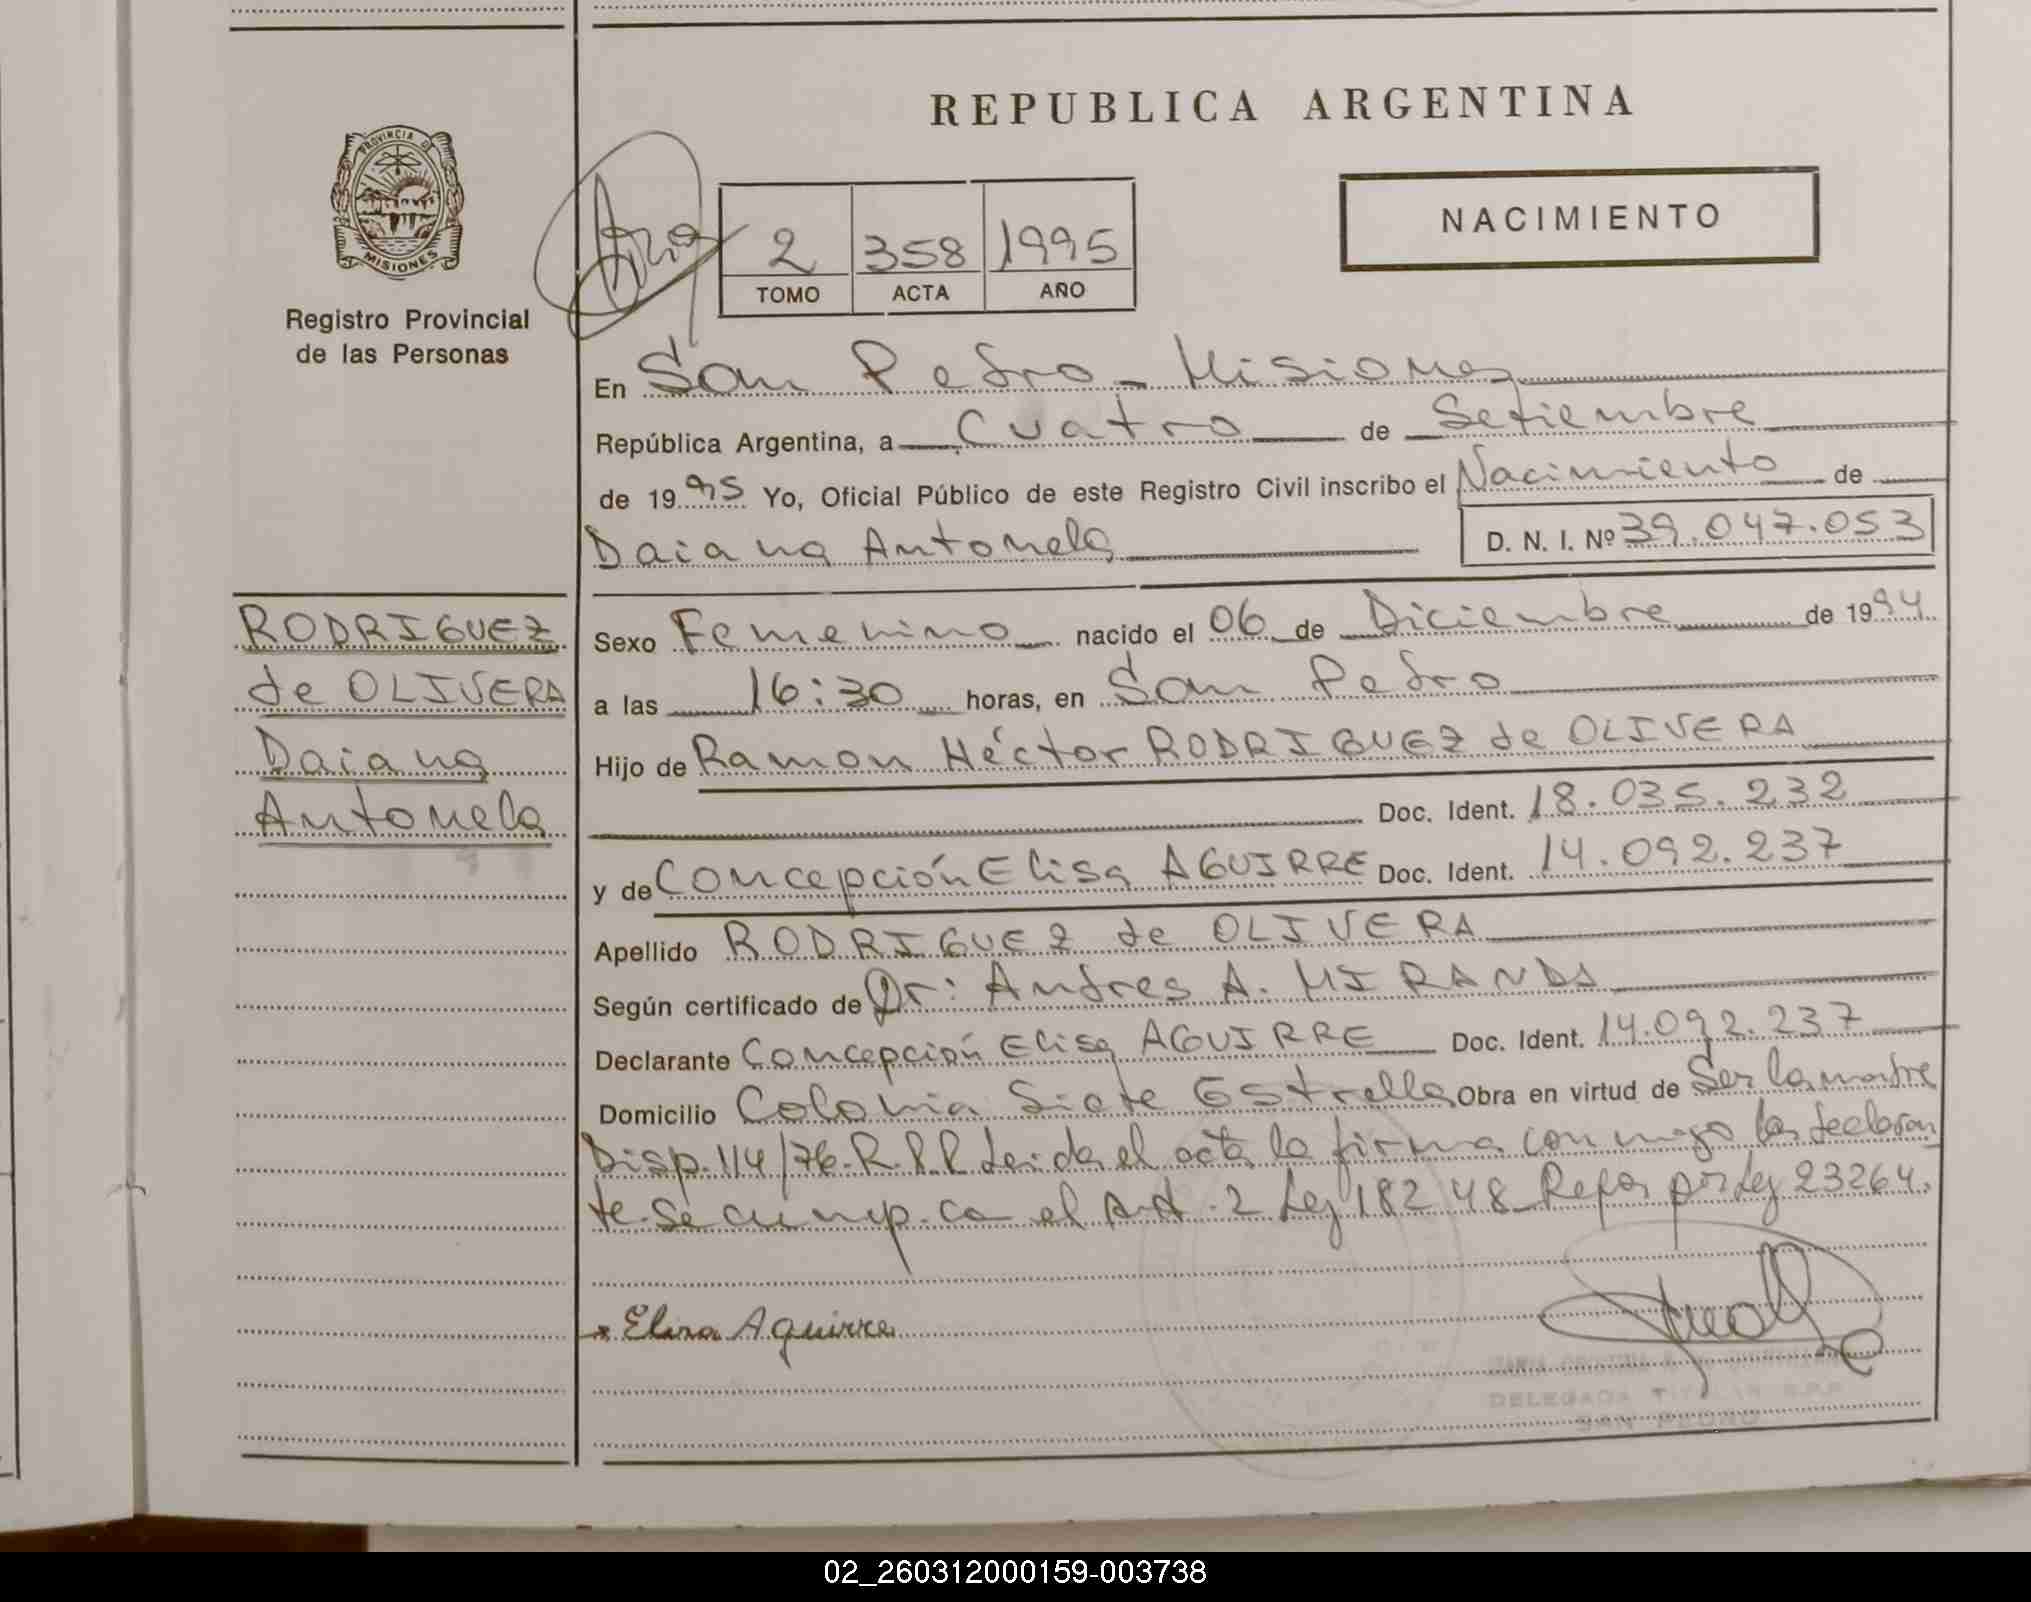 REPUBLICA ARGENTINA
PROVINCIA DE
MISIONES
Registro Provincial
de las Personas
NACIMIENTO
2 358 1995
TOMO ACTA AÑO
En San Pedro - Misiones
República Argentina, a Cuatro de Setiembre
de 1995 Yo, Oficial Público de este Registro Civil inscribo el Nacimiento de
Daiana Antonela D. N. I. Nº 39.047.053
RODRIGUEZ
de OLIVERA
Daiana
Antonela
Sexo Femenino nacido el 06 de Diciembre de 1994
a las 16:30 horas, en San Pedro
Hijo de Ramon Héctor RODRIGUEZ de OLIVERA
Doc. Ident. 18.035.232
y de Concepción Elisa AGUIRRE Doc. Ident. 14.092.237
Apellido RODRIGUEZ de OLIVERA
Según certificado de Dr: Andres A. MIRANDA
Declarante Concepción Elisa AGUIRRE Doc. Ident. 14.092.237
Domicilio Colonia Siete Estrella Obra en virtud de Ser la madre
Disp. 114/76. R.P.P Leida el acta la firma conmigo la declaran
te. Se cump. co el Art. 2 Ley 18248 Refor por Ley 23264.
Elisa Aguirre
DELEGADA TITULAR R.P.P.
SAN PEDRO
02_260312000159-003738